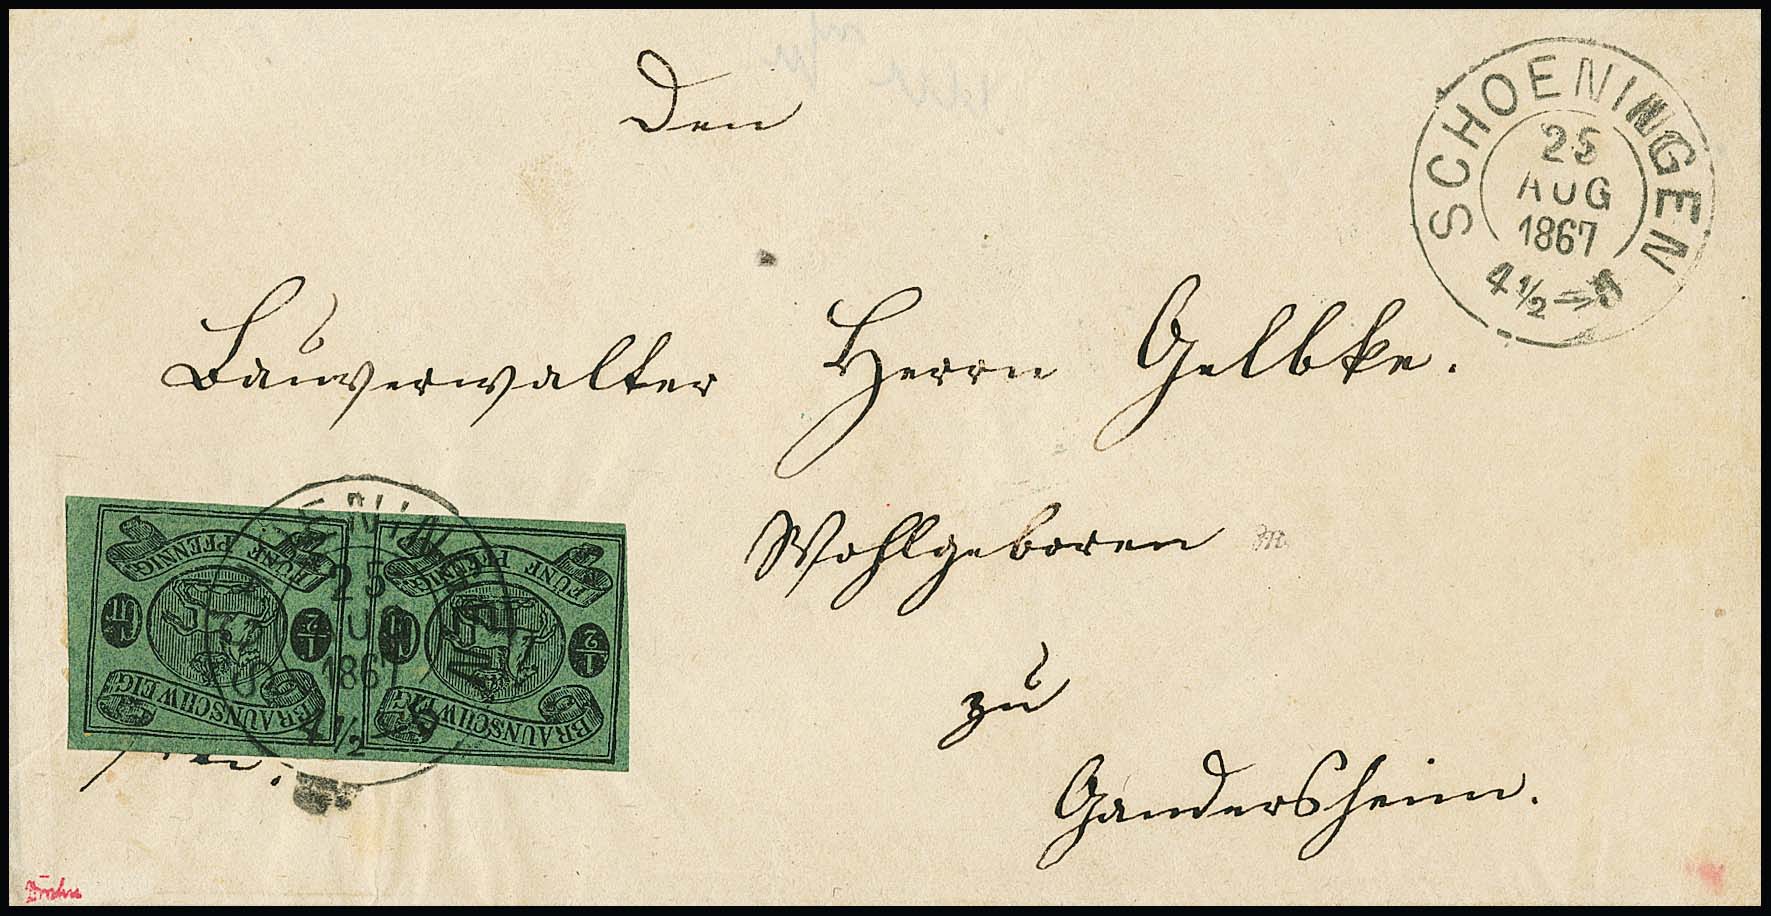 Den
SCHOENINGEN
25
AUG
1867
4½ 5
Bauverwalter Herrn Gelbke.
Wohlgeboren
zu
Gandersheim.
FÜNF PFENNIG
½
BRAUNSCHWEIG
FÜNF PFENNIG
½
BRAUNSCHWEIG
25
1867
4½ 5